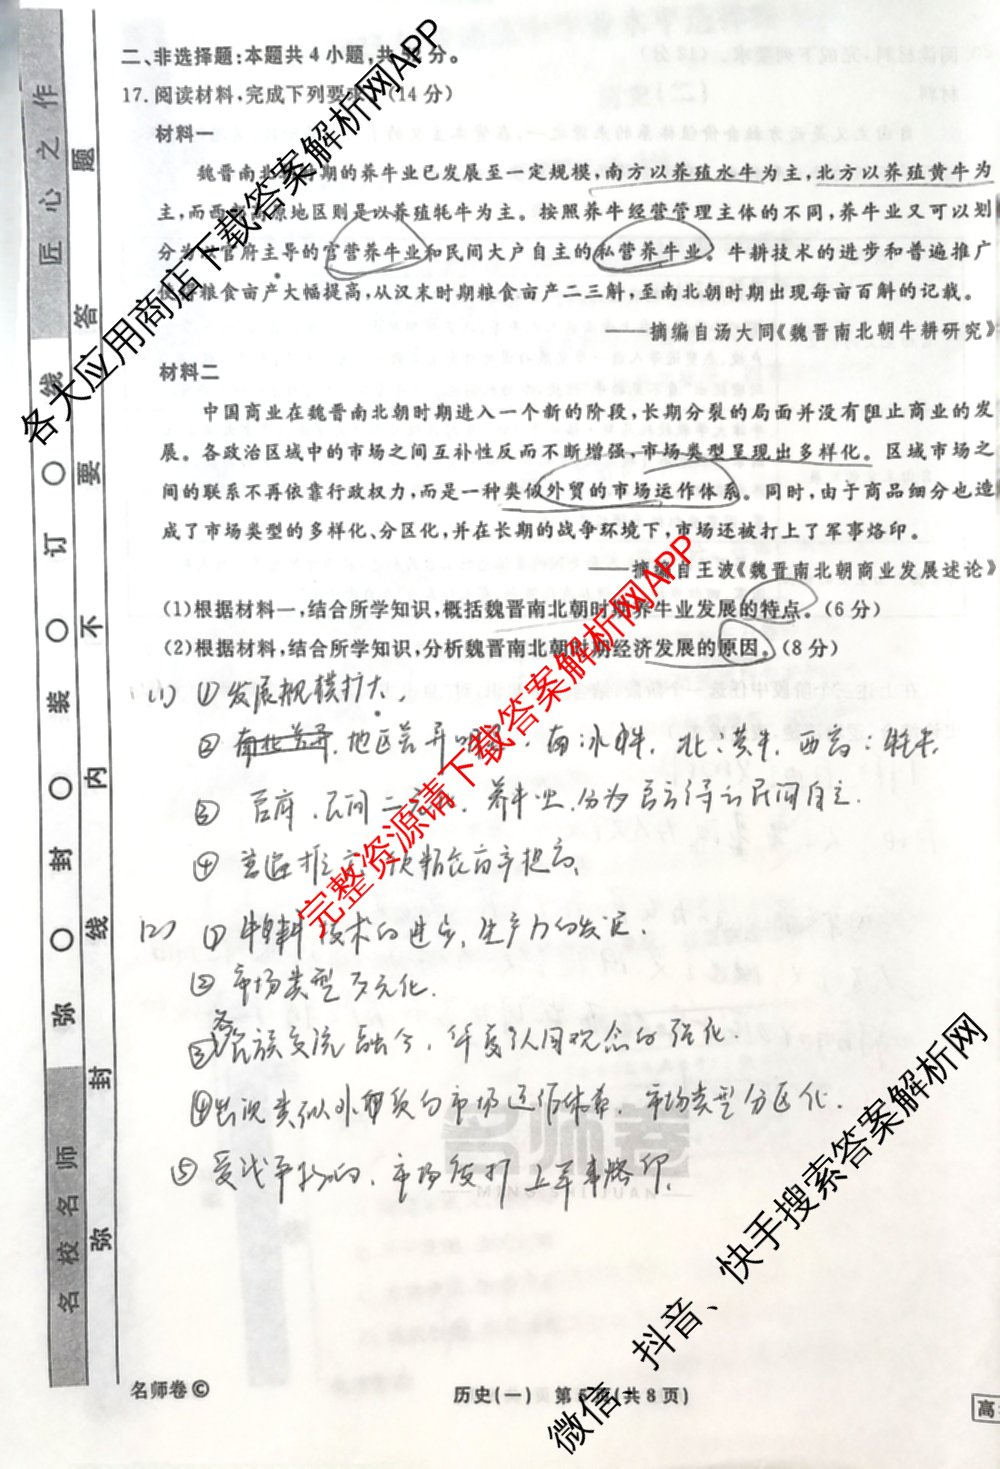 二、非选择题:本题共4小题,共52分。
17.阅读材料,完成下列要求。(14分)
材料一
魏晋南北朝时期的养牛业已发展至一定规模,南方以养殖水牛为主,北方以养殖黄牛为
主,而西部高原地区则是以养殖牦牛为主。按照养牛经营管理主体的不同,养牛业又可以划
分为以官府主导的官营养牛业和民间大户自主的私营养牛业。牛耕技术的进步和普遍推广
使得粮食亩产大幅提高,从汉末时期粮食亩产二三斛,至南北朝时期出现每亩百斛的记载。
——摘编自汤大同《魏晋南北朝牛耕研究》
材料二
中国商业在魏晋南北朝时期进入一个新的阶段,长期分裂的局面并没有阻止商业的发
展。各政治区域中的市场之间互补性反而不断增强,市场类型呈现出多样化。区域市场之
间的联系不再依靠行政权力,而是一种类似外贸的市场运作体系。同时,由于商品细分也造
成了市场类型的多样化、分区化,并在长期的战争环境下,市场还被打上了军事烙印。
——摘编自王波《魏晋南北朝商业发展述论》
(1)根据材料一,结合所学知识,概括魏晋南北朝时期养牛业发展的特点。(6分)
(2)根据材料,结合所学知识,分析魏晋南北朝时期经济发展的原因。(8分)
(1) ①发展规模扩大.
② 地区差异明显:南:水牛, 北:黄牛, 西高:牦牛.
③ 官府、民间二 养牛业,分为官主导认民间自主.
④ 普遍推广, 粮食亩产提高.
(2) ① 牛耕技术的进步,生产力的发展.
② 市场类型多元化.
③各民族交流融合,华夏认同观念的强化.
④出现类似外贸的市场运作体系.市场类型分区化.
⑤受战争 的,市场被打上军事烙印.
名师卷
名师卷©
历史(一) 第5页(共8页)
高
匠心之作
名校名师
弥 封 装 订 线
弥 封 线 内 不 要 答 题
各大应用商店下载答案解析网APP
完整资源请下载答案解析网APP
微信、抖音、快手搜索答案解析网